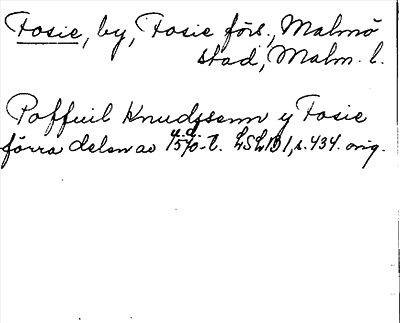 Fosie, by, Fosie förs., Malmö
stad, Malm. l.
Poffuil Knudssenn y Fosie
förra delen av 1570-t. LSLB1, s. 434. orig.